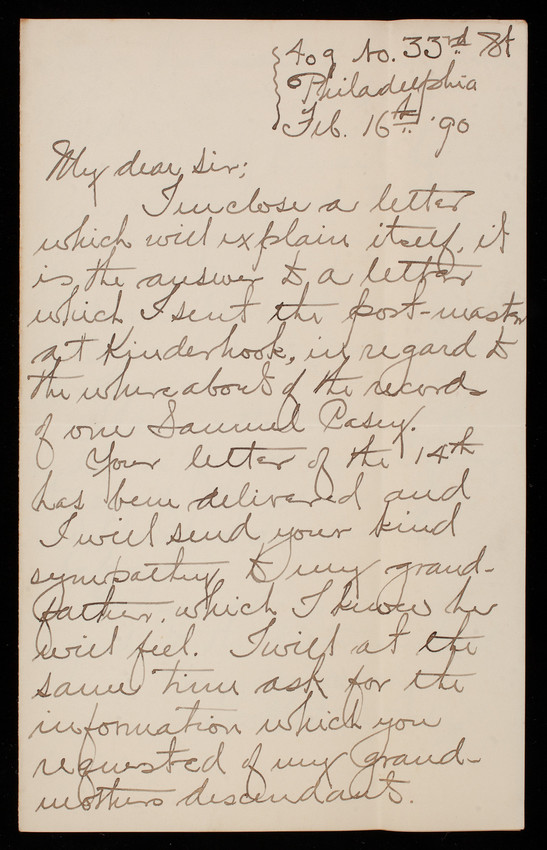 409 No. 33rd St
Philadelphia
Feb. 16th '90
My dear Sir;
I inclose a letter
which will explain itself, it
is the answer to a letter
which I sent the post-master
at Kinderhook, in regard to
the whereabouts of the records
of one Samuel Casey.
Your letter of the 14th
has been delivered and
I will send your kind
sympathy to my grand-
father, which I know he
will feel. I will at the
same time ask for the
information which you
requested of my grand-
mothers descendants.